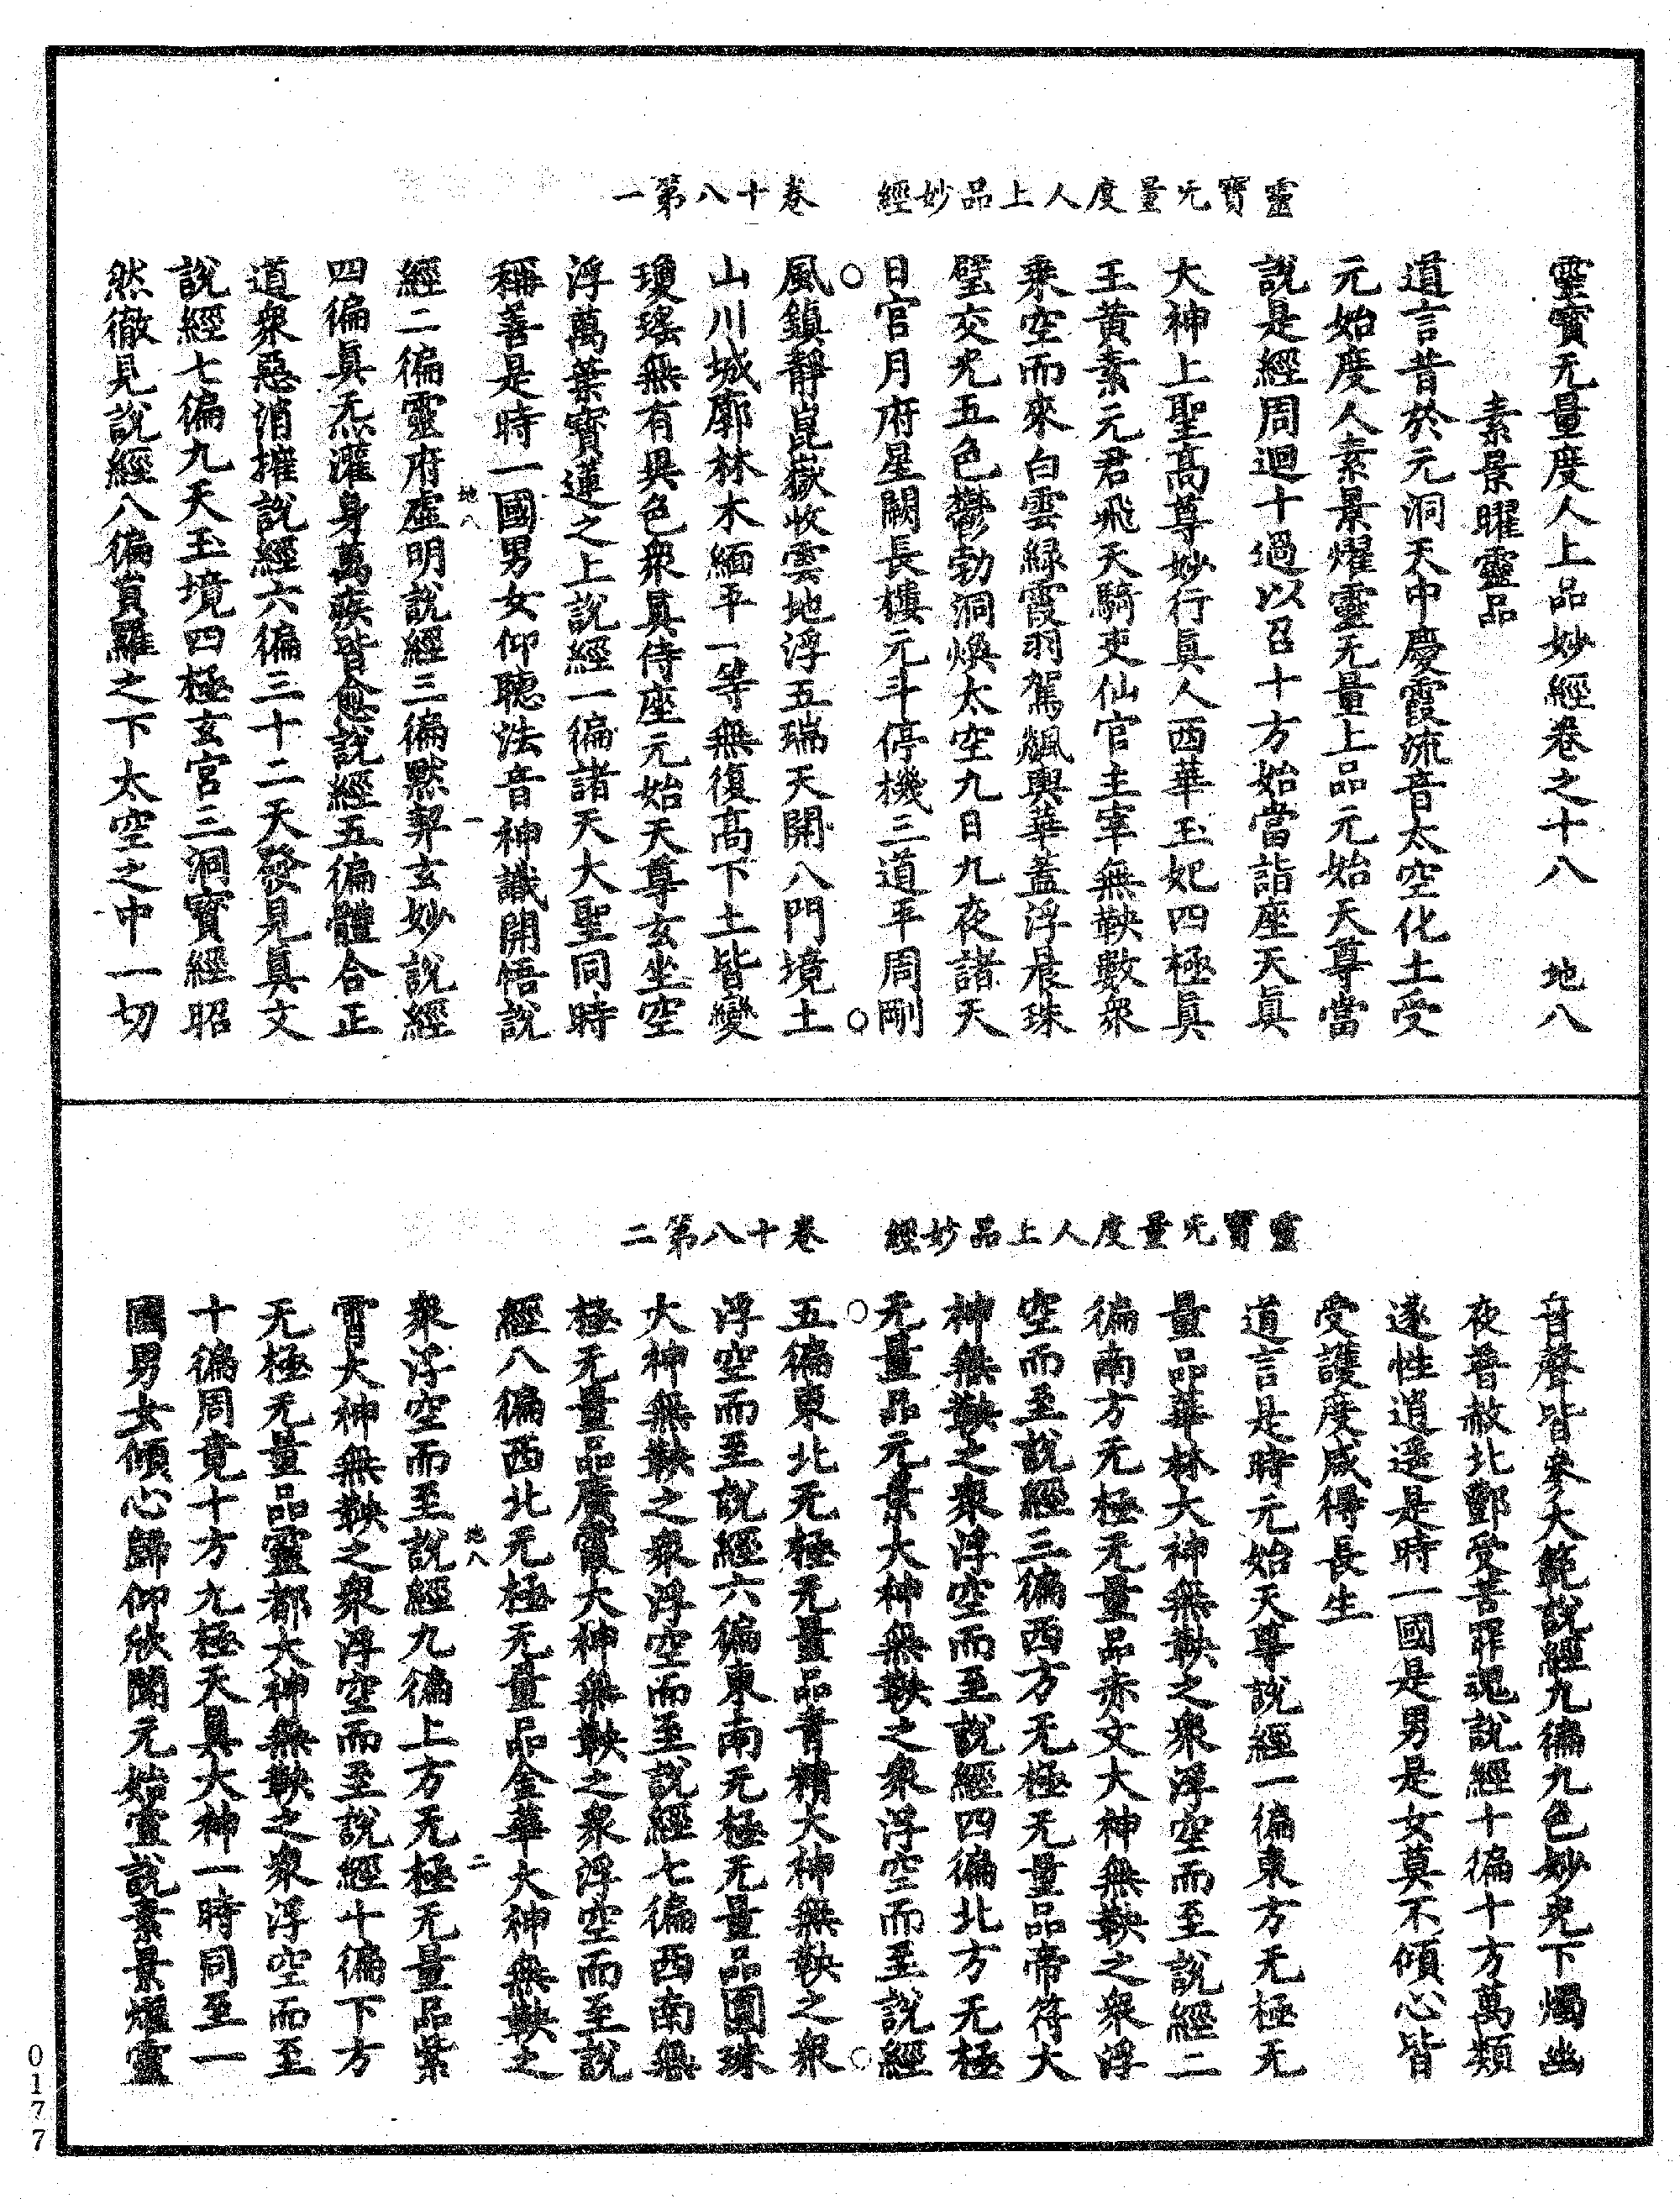 靈寶无量度人上品妙經　卷十八第一
靈寶无量度人上品妙經卷之十八　地八
素景曜靈品
道言昔於元洞天中慶霞流音太空化土受
元始度人素景燿靈无量上品元始天尊當
說是經周迴十過以召十方始當詣座天眞
大神上聖高尊妙行眞人西華玉妃四極眞
王黃素元君飛天騎吏仙官主宰無鞅數衆
乘空而來白雲綠霞羽駕飆輿華蓋浮晨珠
璧交光五色鬱勃洞煥太空九日九夜諸天
日官月府星闕長樓元斗停機三道平周剛
風鎮靜崑嶽收雲地浮五瑞天開八門境土
山川城廓林木緬平一等無復高下土皆變
瓊瑤無有異色衆眞侍座元始天尊玄坐空
浮萬葉寶蓮之上說經一徧諸天大聖同時
稱善是時一國男女仰聽法音神識開悟說
地八　一
經二徧靈府虛明說經三徧黙契玄妙說經
四徧眞炁灌身萬疾皆愈說經五徧體合正
道衆惡消摧說經六徧三十二天發見眞文
說經七徧九天玉境四極玄宮三洞寶經昭
然徹見說經八徧貫羅之下太空之中一切
靈寶无量度人上品妙經　卷十八第二
音聲皆參大範說經九徧九色妙光下燭幽
夜普赦北酆受苦罪魂說經十徧十方萬類
遂性逍遥是時一國是男是女莫不傾心皆
受護度咸得長生
道言是時元始天尊說經一徧東方无極无
量品華林大神無鞅之衆浮空而至說經二
徧南方无極无量品赤文大神無鞅之衆浮
空而至說經三徧西方无極无量品帝符大
神無鞅之衆浮空而至說經四徧北方无極
无量品元景大神無鞅之衆浮空而至說經
五徧東北无極无量品青精大神無鞅之衆
浮空而至說經六徧東南无極无量品圓珠
大神無鞅之衆浮空而至說經七徧西南無
極无量品廣霞大神無鞅之衆浮空而至說
經八徧西北无極无量品金華大神無鞅之
地八　二
衆浮空而至說經九徧上方无極无量品紫
霄大神無鞅之衆浮空而至說經十徧下方
无極无量品靈都大神無鞅之衆浮空而至
十徧周竟十方九極天眞大神一時同至一
國男女傾心歸仰欣聞元始宣說素景燿靈
0177